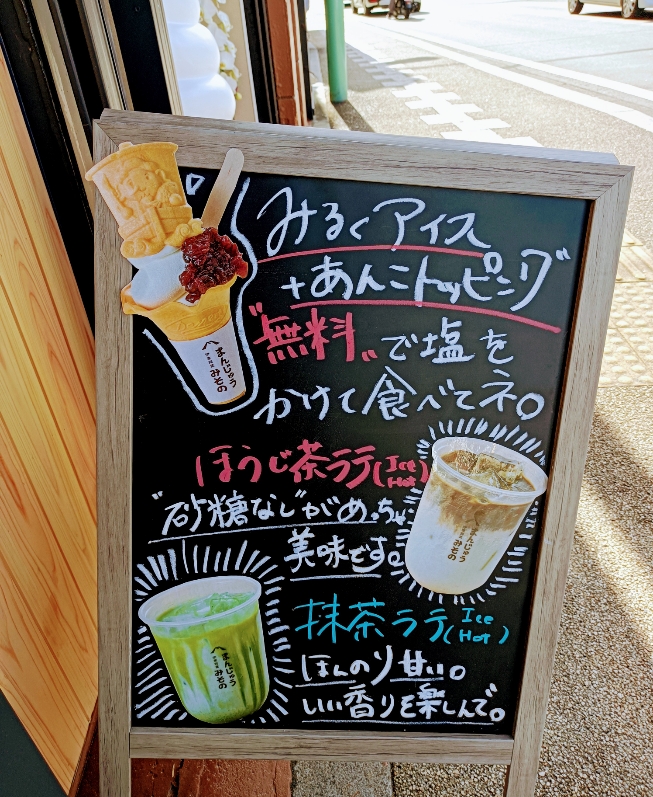 みるくアイス
+あんこトッピング
"無料"で塩を
かけて食べてネ。
まんじゅう
みその
ほうじ茶ラテ(Ice Hot)
"砂糖なし"がめっちゃ
美味です。
まんじゅう
みその
抹茶ラテ(Ice Hot)
ほんのり甘い。
いい香りを楽しんで。
まんじゅう
みその